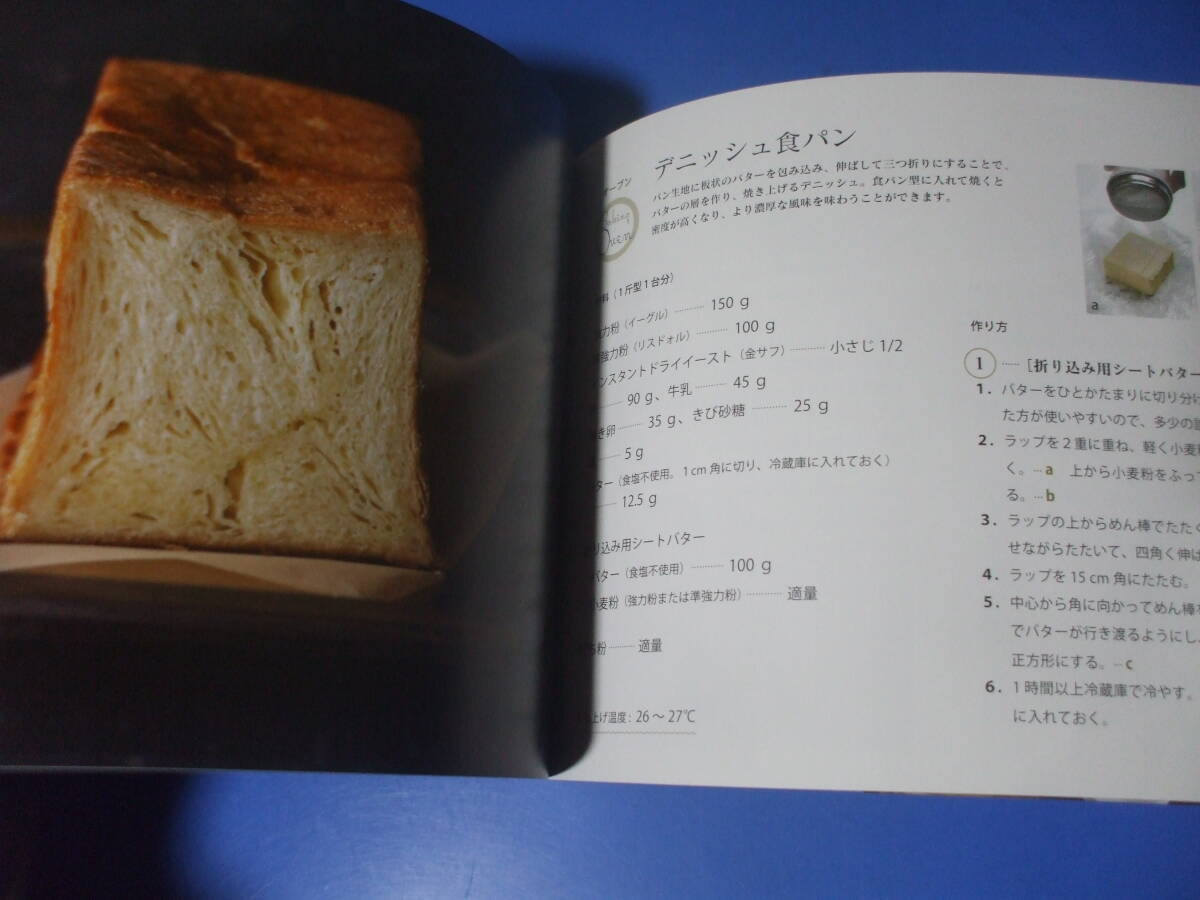 デニッシュ食パン
パン生地に板状のバターを包み込み、伸ばして三つ折りにすることで、
バターの層を作り、焼き上げるデニッシュ。食パン型に入れて焼くと
密度が高くなり、より濃厚な風味を味わうことができます。
ーブン
料（1斤型1台分）
力粉（イーグル）………… 150 g
強力粉（リスドォル）………… 100 g
ンスタントドライイースト（金サフ）………… 小さじ 1/2
90 g、牛乳 ………… 45 g
き卵 ………… 35 g、きび砂糖 ………… 25 g
5 g
ター（食塩不使用。1cm角に切り、冷蔵庫に入れておく）
12.5 g
り込み用シートバター
バター（食塩不使用）………… 100 g
小麦粉（強力粉または準強力粉）………… 適量
粉 ………… 適量
上げ温度：26〜27℃
a
作り方
1 ……［折り込み用シートバター
1. バターをひとかたまりに切り分け
た方が使いやすいので、多少の
2. ラップを2重に重ね、軽く小麦
く。…a 上から小麦粉をふっ
る。…b
3. ラップの上からめん棒でたたく
せながらたたいて、四角く伸ば
4. ラップを15cm角にたたむ。
5. 中心から角に向かってめん棒を
でバターが行き渡るようにし、
正方形にする。…c
6. 1時間以上冷蔵庫で冷やす。
に入れておく。